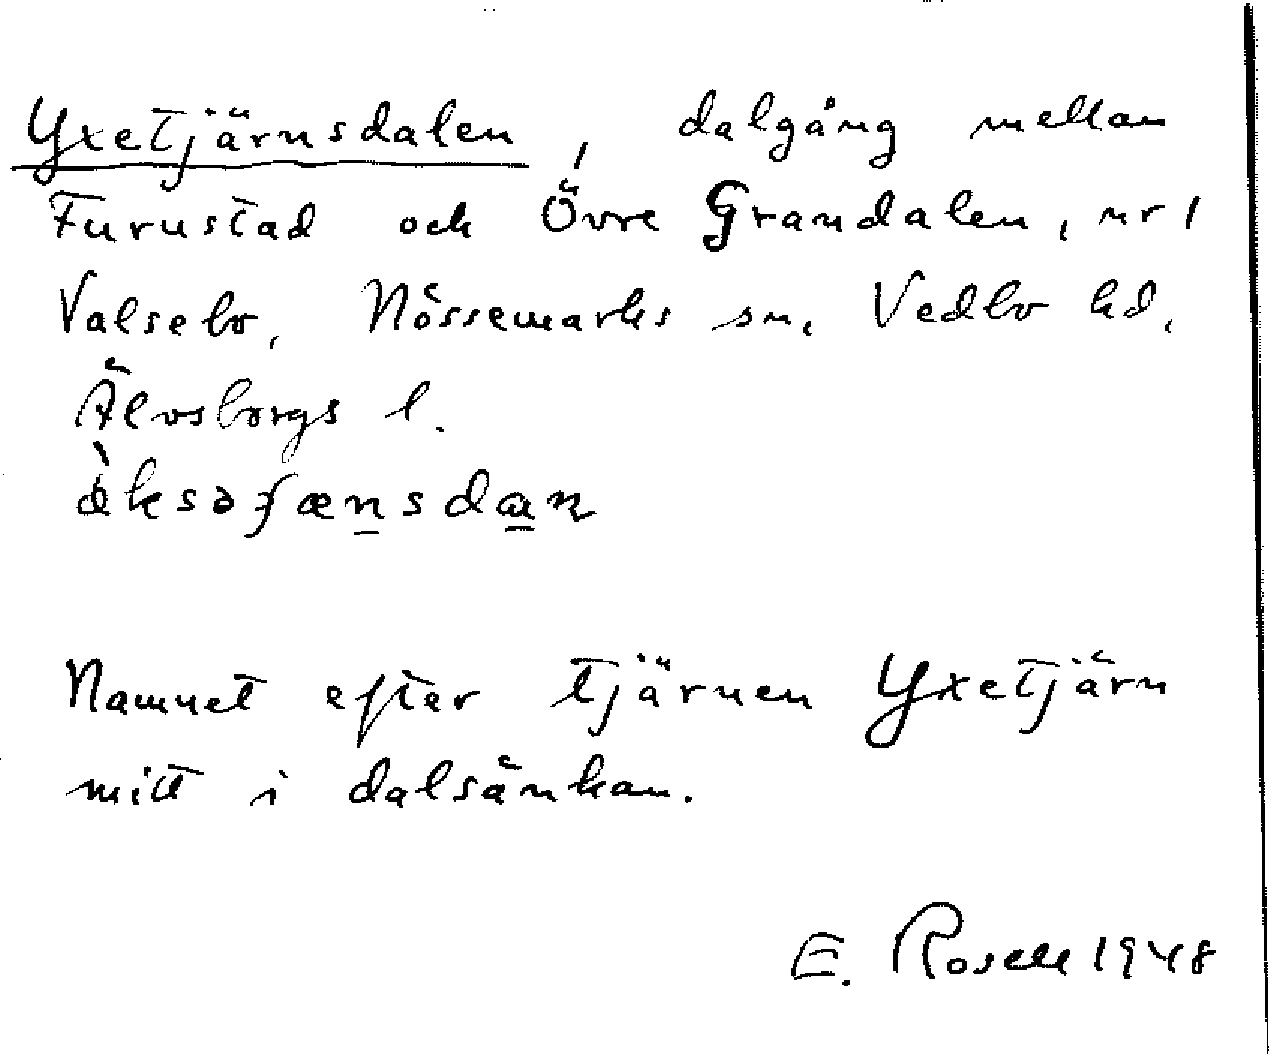 Yxetjärnsdalen, dalgång mellan
Furustad och Övre Grandalen, nr 1
Valsebo, Nössemarks sn. Vedbo hd,
Älvsborgs l.
Namnet efter tjärnen Yxetjärn
mitt i dalsänkan.
E. Rosell 1948